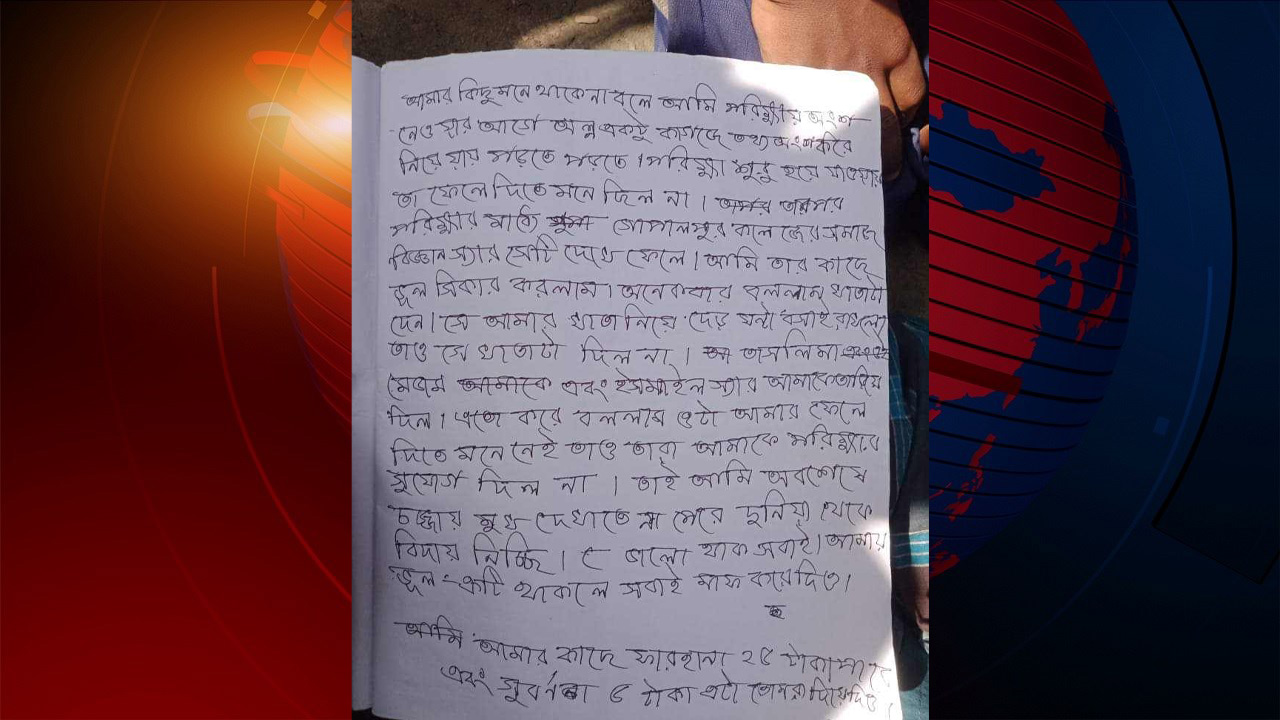 আমার কিছু মনে থাকেনা বলে আমি পরিক্ষায় অংশ
নেওয়ার আগে অল্প একটু কাগজে তথ্য অংশ করে
নিয়ে যায় পড়তে পড়তে। পরিক্ষা শুরু হয়ে যাওয়ায়
তা ফেলে দিতে মনে ছিল না। তারপর
পরিক্ষার মাঝে গোপালপুর কলেজের সমাজ
বিজ্ঞান স্যার সেটি দেখে ফেলে। আমি তার কাছে
ভুল সিকার করলাম। অনেকবার বললাম খাতাটা
দেন। সে আমার খাতা নিয়ে দেড় ঘন্টা বসাই রাখলো
তাও সে খাতাটা দিল না। তাসলিমা
মেডাম এবং ইসমাইল স্যার আমাকে তাড়িয়ে
দিল। এতো করে বললাম ওটা আমার ফেলে
দিতে মনে নেই তাও তারা আমাকে পরিক্ষার
সুযোগ দিল না। তাই আমি অবশেষে
লজ্জায় মুখ দেখাতে না পেরে দুনিয়া থেকে
বিদায় নিচ্ছি। ভালো থাক সবাই। আমার
ভুল-ত্রুটি থাকলে সবাই মাফ করে দিও।
আমি আমার কাছে ফারহানা ২৫ টাকা পাবে
এবং সুবর্ণা ৫ টাকা এটা তোমরা দিয়ে দিও।